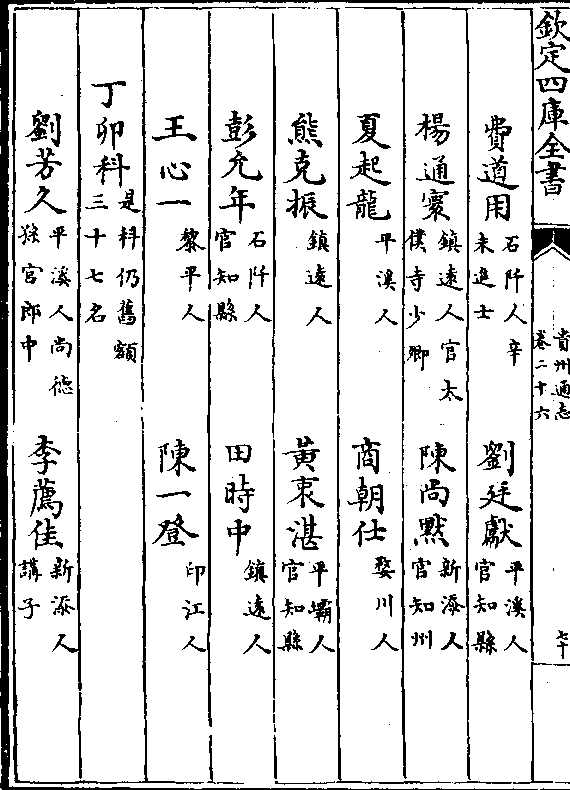 欽定四庫全書
貴州通志
卷二十六
七十
費遒用 石阡人辛未進士 劉廷獻 平溪人官知縣
楊通寰 鎮遠人官太僕寺少卿 陳尚黙 新添人官知州
夏起龍 平溪人 商朝仕 婺川人
熊克振 鎮遠人 黃衷湛 平壩人官知縣
彭允年 石阡人官知縣 田時中 鎮遠人
王心一 黎平人 陳一登 印江人
丁卯科 是科仍舊額三十七名
劉芳久 平溪人尚德孫官郎中 李薦佳 新添人講子